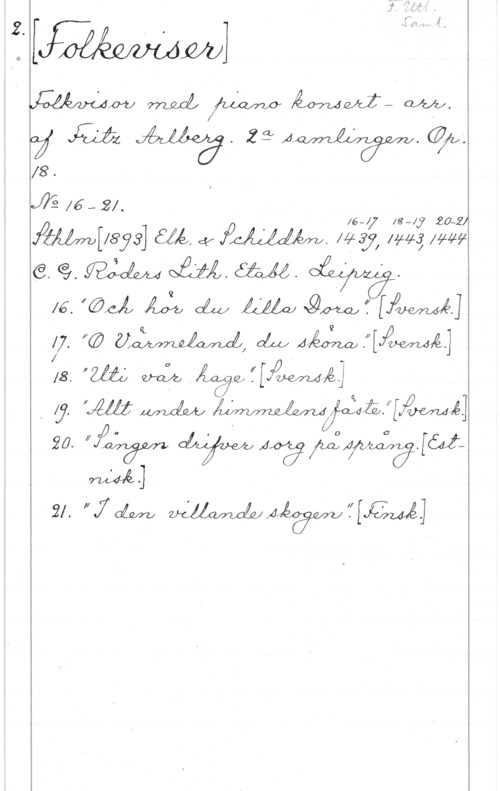 F. Utl.
Saml.
2.
[Folkeviser]
Folkvisor med piano konsert - arr.
af Fritz Arlberg. 2a samlingen. Op.
18.
No 16-21.
16-17 18-19 20-21
Sthlm [1893] Elk. & Schildkn. 1439, 1443, 1444
C. G. Röders Lith. Etabl. Leipzig.
16. "Och hör du lilla Dora". [Svensk.]
17. "O Värmeland, du sköna". [Svensk.]
18. "Uti vår hage". [Svensk.]
19. "Allt under himmelens fäste." [Svensk.]
20. "Sången drifver sorg på språng. [Est-
nisk.]
21. "I den villande skogen". [Finsk.]